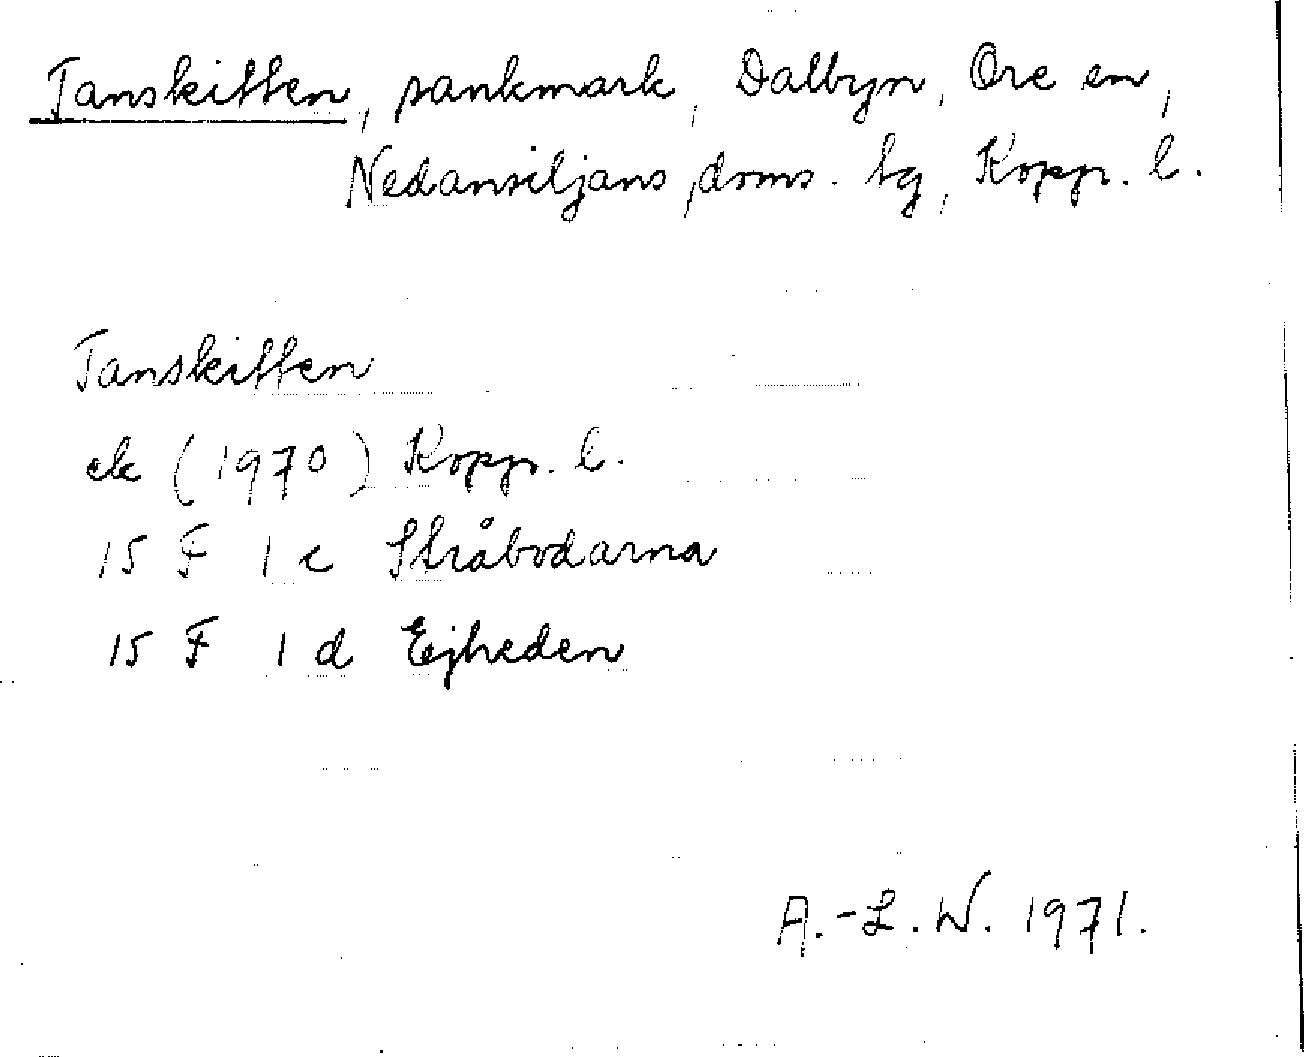 Tanskiften, sankmark, Dalbyn, Ore sn,
Nedansiljans doms. tg, Kopp. l.
Tanskiften
ek (1970) Kopp. l.
15 F 1 c Stråbodarna
15 F 1 d Ejheden
A.-L.W. 1971.